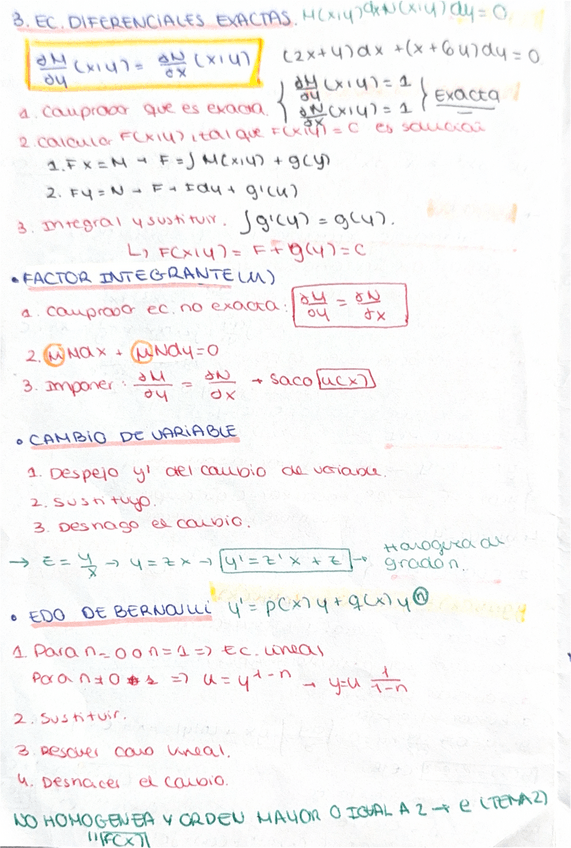 3. EC. DIFERENCIALES EXACTAS. M(x,y)dx N(x,y)dy=0
∂M/∂y (x,y) = ∂N/∂x (x,y) (2x+y)dx + (x+6y)dy=0
1. Comprobar que es exacta. { ∂M/∂y (x,y) = 1 ∂N/∂x (x,y) = 1 } Exacta
2. Calcular F(x,y), tal que F(x,y)=C es solución
1. Fx=M → F=∫M(x,y) + g(y)
2. Fy=N → F → Fdy + g'(y)
3. Integral y sustituir. ∫g'(y) = g(y).
↳ F(x,y) = F + g(y) = C
• FACTOR INTEGRANTE (μ)
1. Comprobar ec. no exacta: ∂M/∂y = ∂N/∂x
2. μMdx + μNdy=0
3. Imponer: ∂M/∂y = ∂N/∂x → saco μ(x)
• CAMBIO DE VARIABLE
1. Despejo y' del cambio de variable.
2. Sustituyo.
3. Deshago el cambio.
→ z = y/x → y = zx → y' = z'x + z → Homogénea de
grado n.
• EDO DE BERNOULLI y' = p(x)y + q(x)y^n
1. Para n=0 o n=1 => Ec. lineal
Para n≠0 ≠ 1 => u = y^1-n → y=u^1/1-n
2. Sustituir.
3. Resolver como lineal.
4. Deshacer el cambio.
NO HOMOGENEA Y ORDEN MAYOR O IGUAL A 2 → e (TEMA 2)
"F(x)